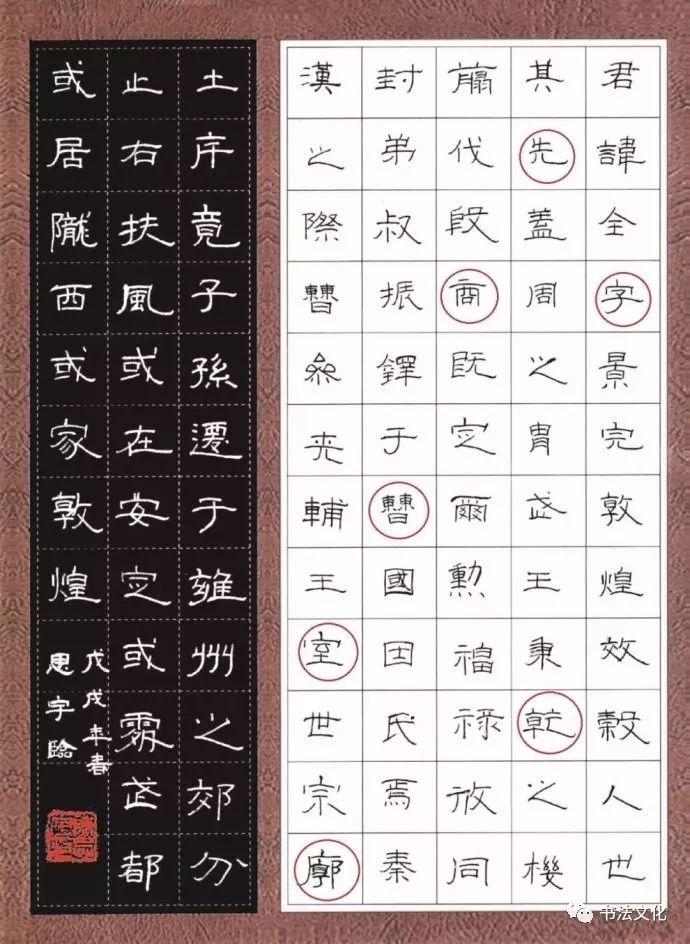 君諱全字景完敦煌效穀人也
其先蓋周之胄武王秉乾之機
翦伐殷商既定爾勳福祿攸同
封弟叔振鐸于曹國因氏焉秦
漢之際曹參夾輔王室世宗廓
土斥竟子孫遷于雍州之郊分
止右扶風或在安定或處武都
或居隴西或家敦煌
戊戌年春
思字臨
书法文化